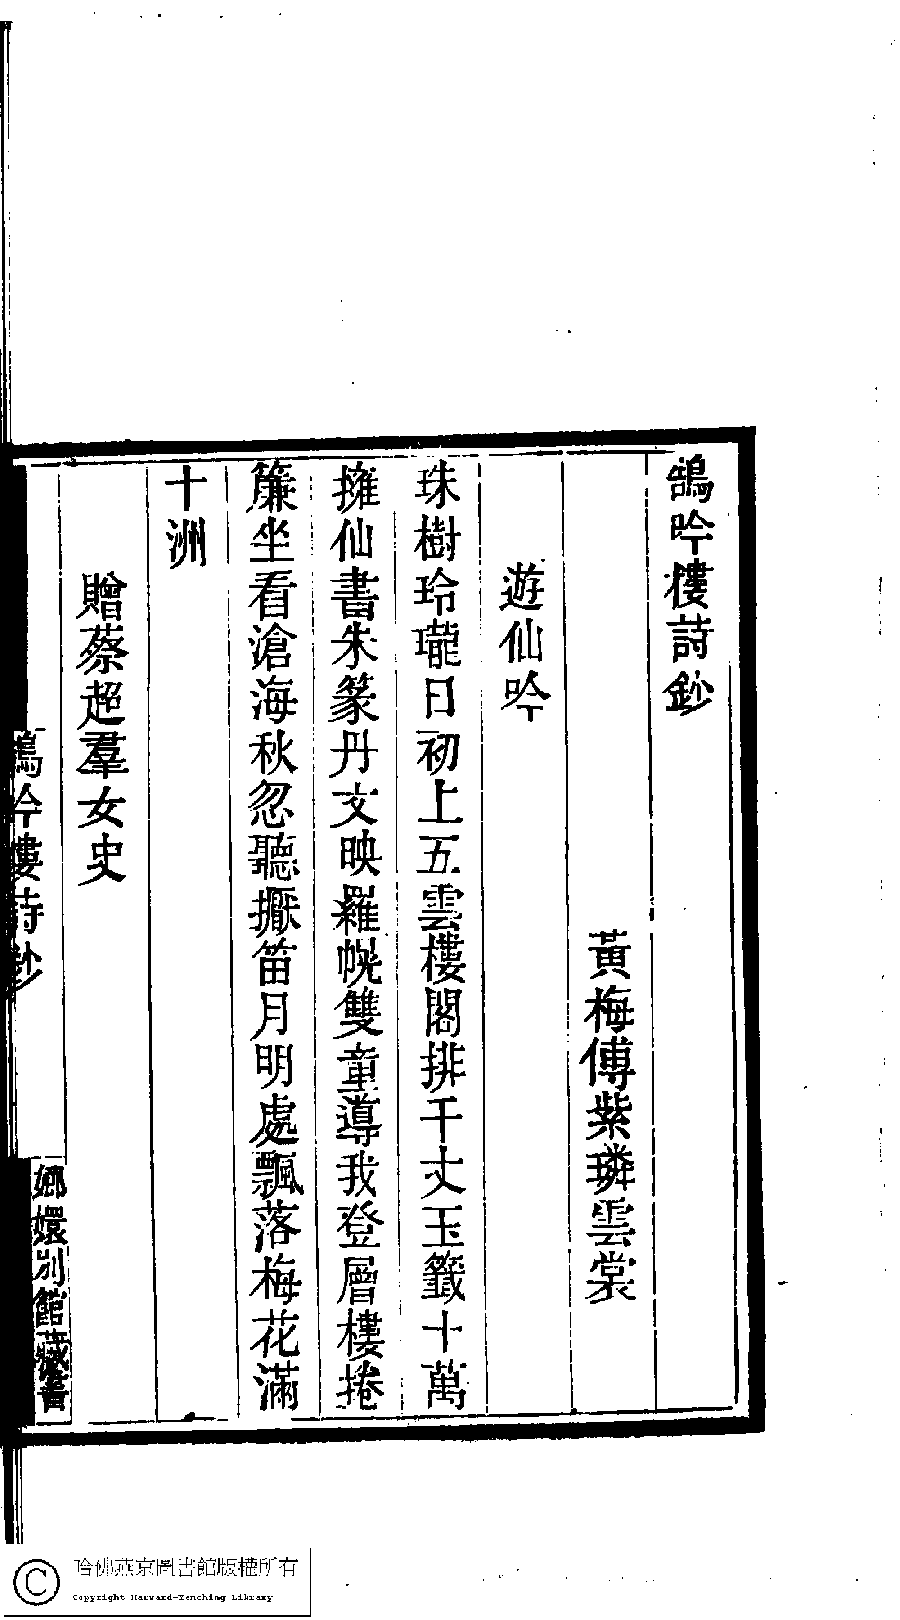 鵠吟樓詩鈔
黃梅傅紫璘雲裳
遊仙吟
珠樹玲瓏日初上五雲樓閣排千丈玉籤十萬
擁仙書朱篆丹文映羅幌雙童導我登層樓捲
簾坐看滄海秋忽聽擫笛月明處飄落梅花滿
十洲
贈蔡超羣女史
鵠吟樓詩鈔
嫏嬛別館藏書
哈佛燕京圖書館版權所有
Copyright Harvard-Yenching Library